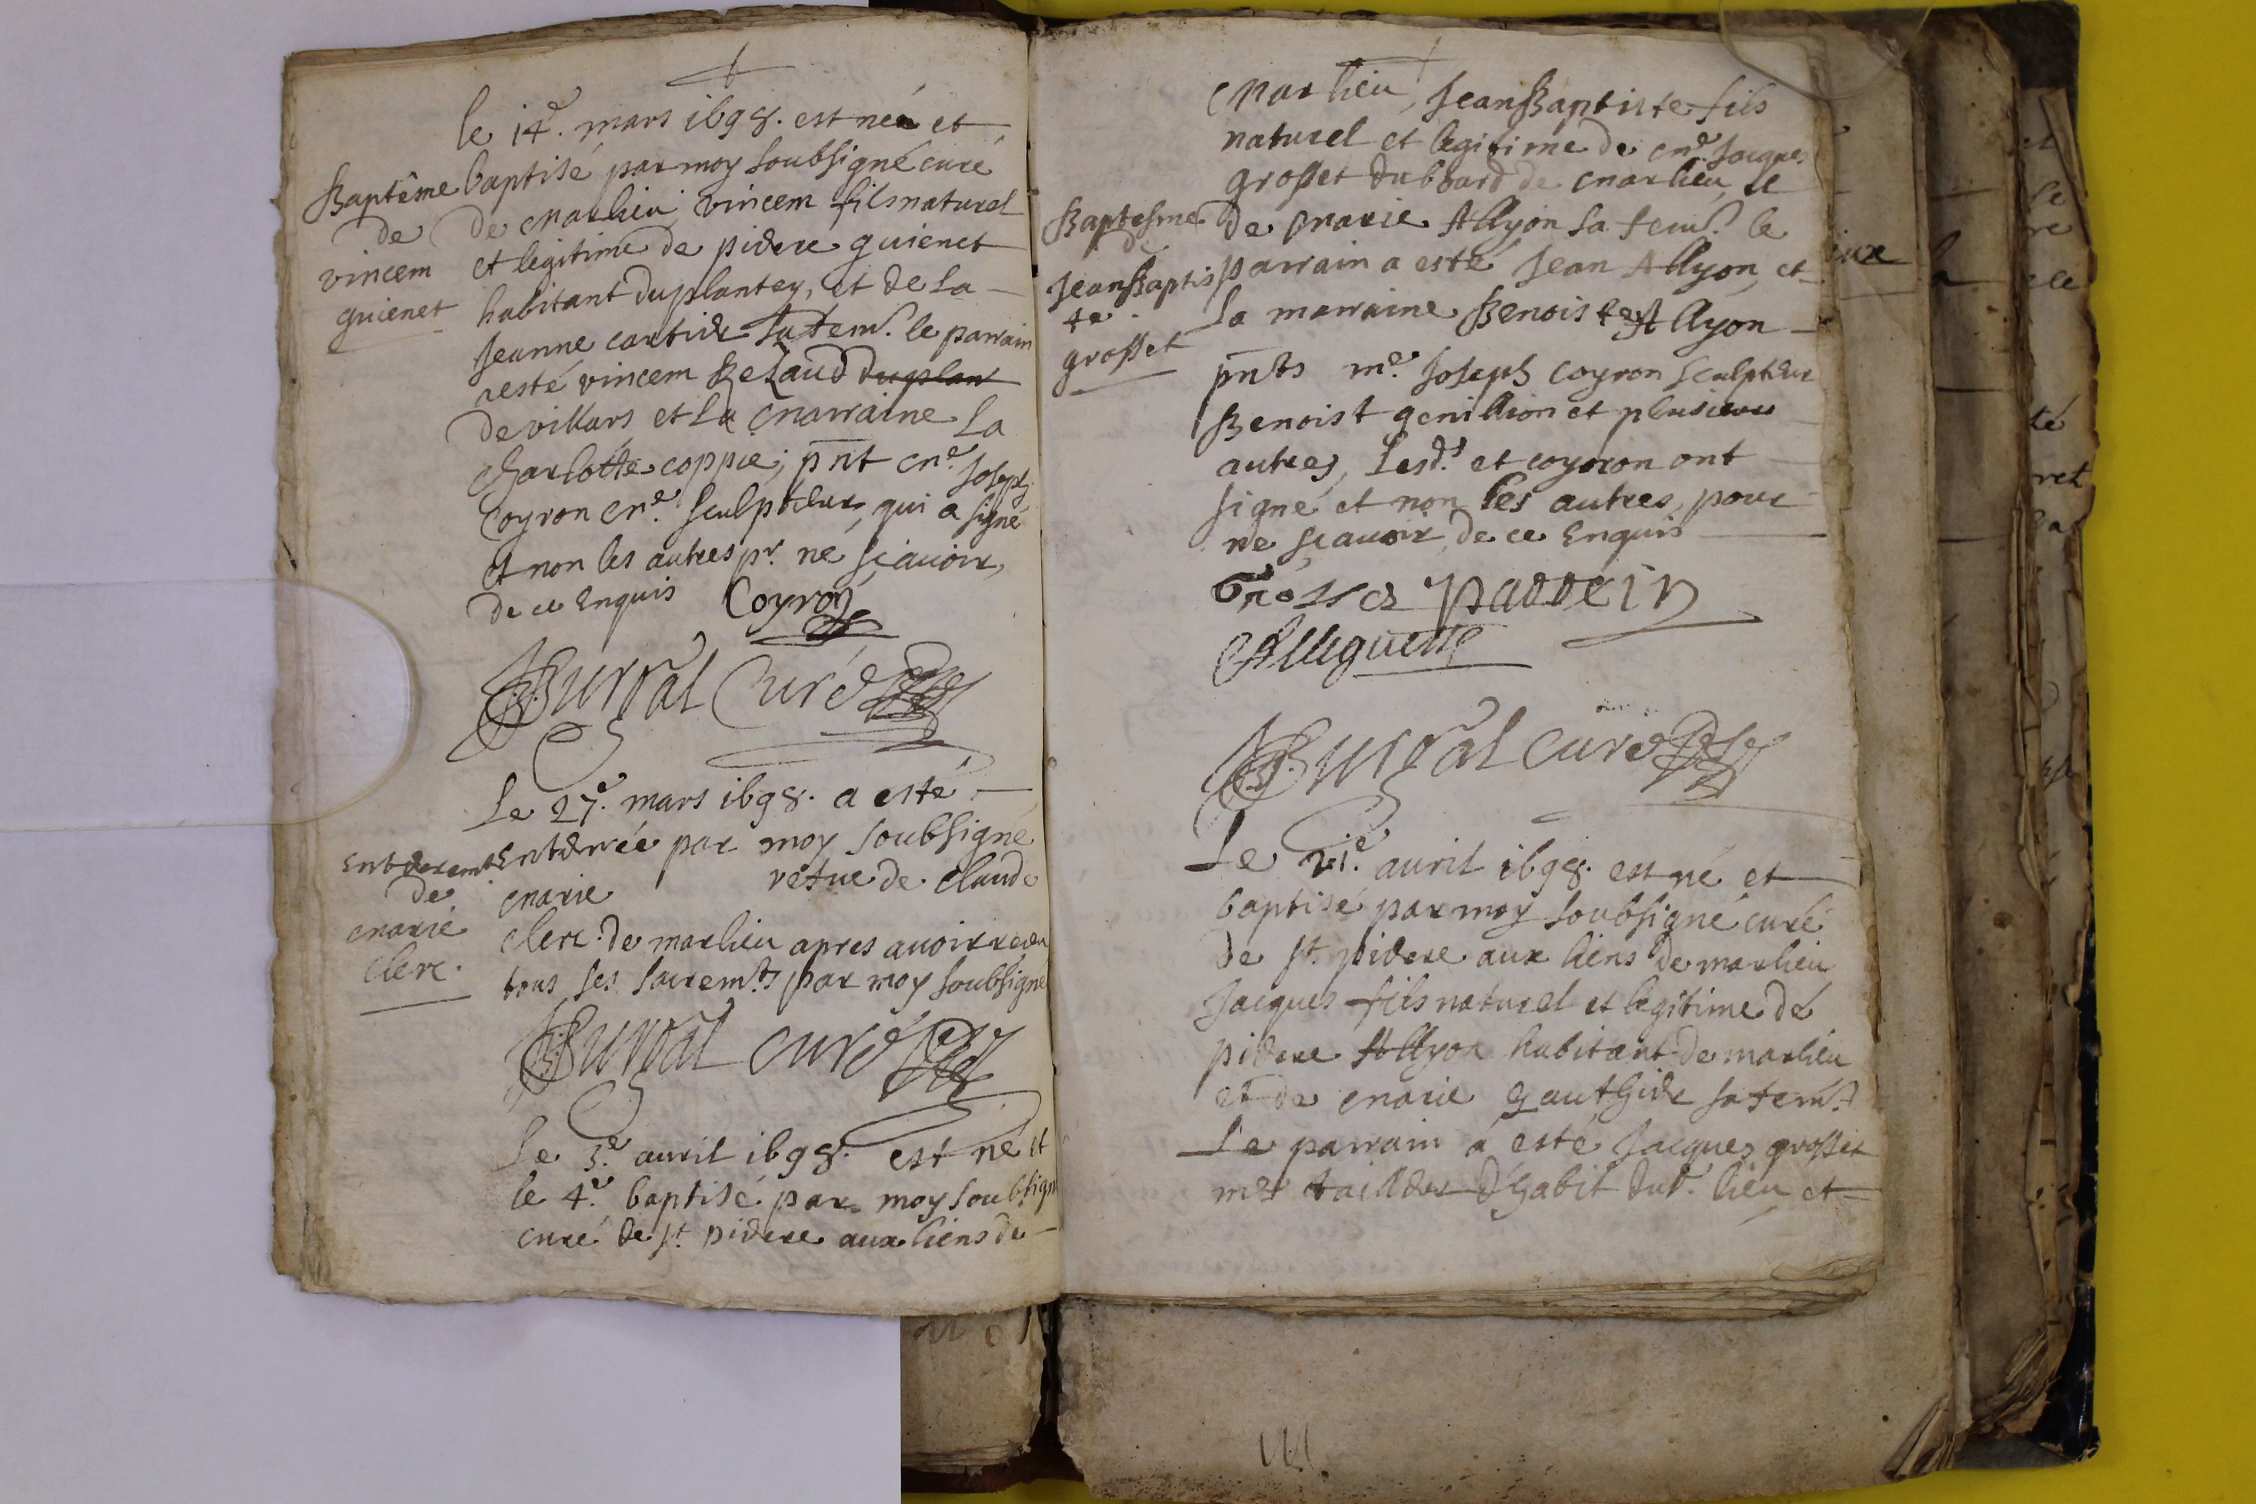 le 14e. mars 1698. est née et
Baptême
de
vincem
guienet
baptisé par moy soubsigné curé
de marlieu vincem fils naturel
et legitime de pierre guienet
habitant du plantey, et de la
Jeanne cartier sa fem.e le parrain
a esté vincem Belaud du plant
de villars et la marraine la
charlotte coppie; pnt me. Joseph
Coyron me. sculpteur, qui a signé
et non les autres pr. ne sçavoir,
de ce enquis Coyron
Burval Curé
Le 27e. mars 1698. a esté
Enterremt
de
marie
clerc.
Enterrée par moy soubsigné
marie vefue de claude
clerc. de marlieu apres avoir receu
tous ses sacremts par moy soubsigné
Burval curé
Le 3e. avril 1698. est né et
le 4e. baptisé par moy soubsigné
curé de st. pierre aux liens de
marlieu, Jean Baptiste fils
naturel et legitime de me. Jacques
grosset du bourd de marlieu, et
Baptesme
de
Jean Baptis
te
grosset
de marie Allyon sa fem.e le
parrain a esté Jean Allyon, et
la marraine Benoiste Allyon
pnts me. Joseph coyron sculpteur
Benoist genillion et plusieurs
autres, lesds. et coyron ont
signé et non les autres, pour
ne sçavoir de ce enquis
Grosset parrein
Burval curé
Le 21e. avril 1698. est né et
baptisé par moy soubsigné curé
de st. pierre aux liens de marlieu
Jacques fils naturel et legitime de
pierre Allyon habitant de marlieu
et de marie gauthier sa fem.e
Le parrain a esté Jacques grosset
me tailleur d'habit dud. lieu et